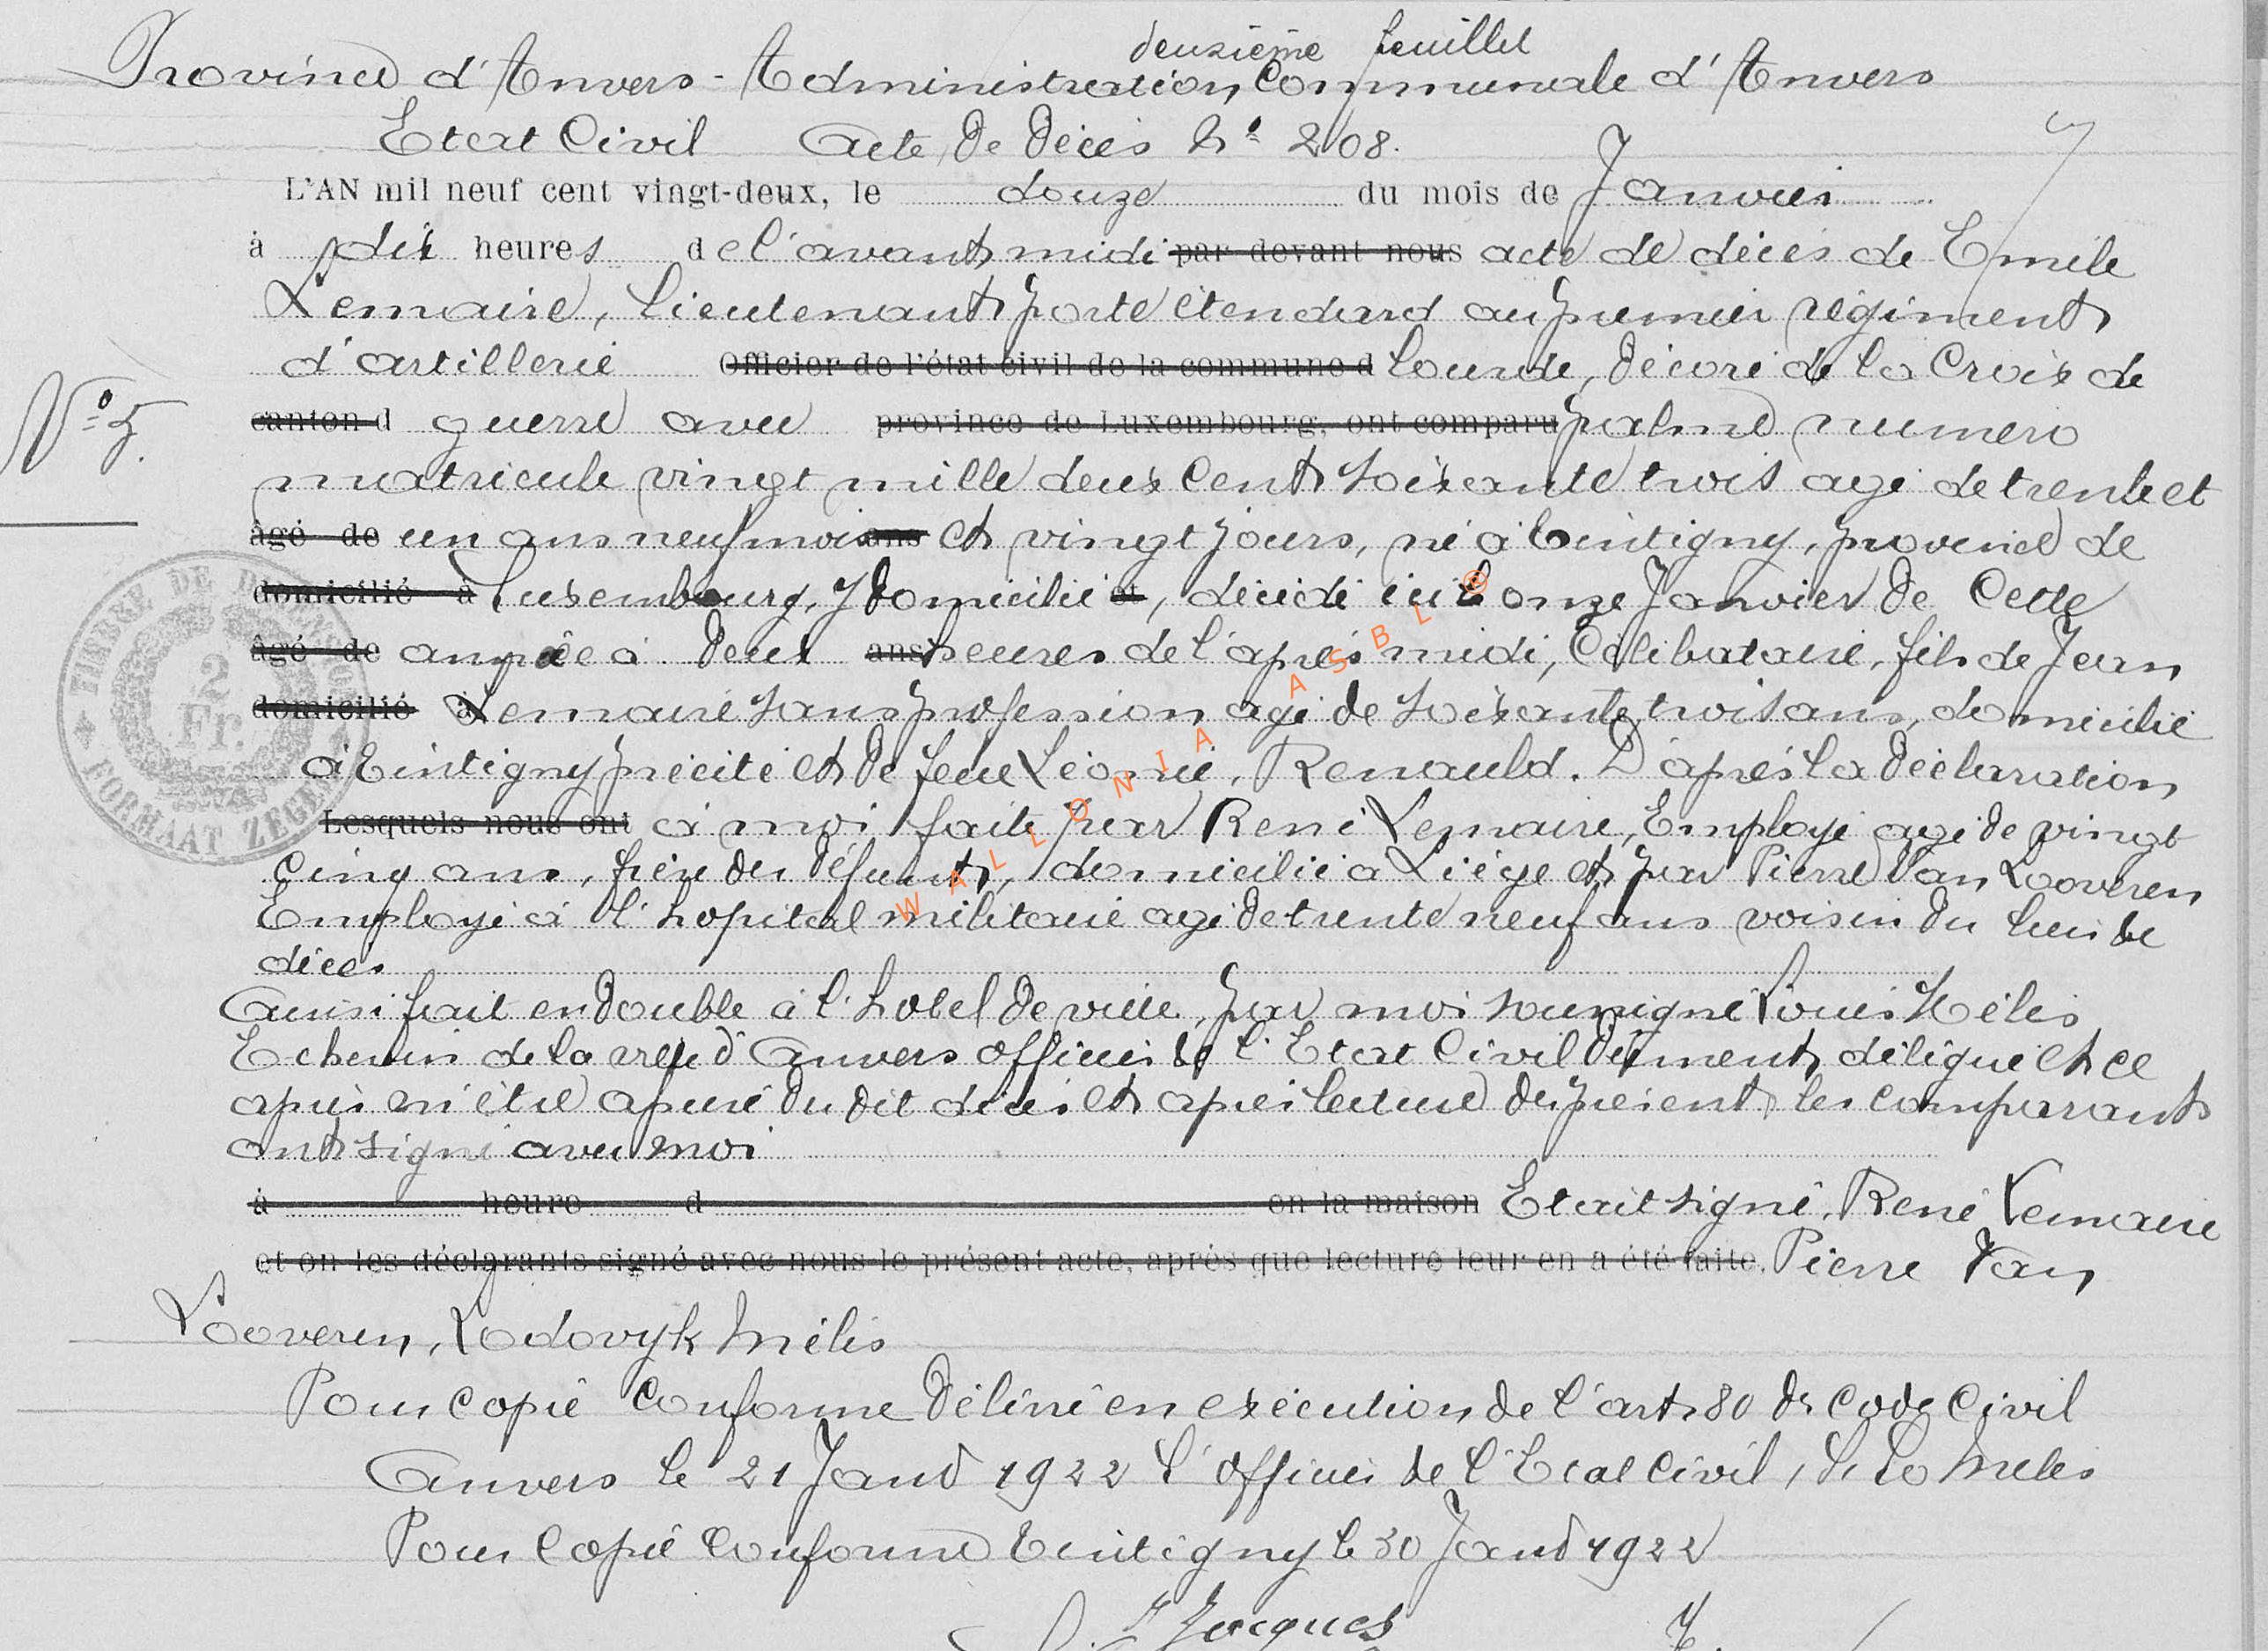 deuzième feuillet
Province d'Anvers - Administration Communale d'Anvers
Etat Civil Acte De Décès No 208.
L'AN mil neuf cent vingt-deux, le douze du mois de Janvier
à dix heures de l'avant midi par devant nous acte de décès de Emile
Lemaire, Lieutenant porte étendard au premier régiment
d'artillerie Officier de l'état civil de la commune d lourde, Décoré de la Croix de
No 5.
canton d guerre avec province de Luxembourg, ont comparu palme numéro
matricule vingt mille deux cent soixante trois agé de trente et
âgé de un ans neuf mois ans et vingt jours, né à Tintigny, province de
domicilié à Luxembourg, y Domicilié et, décédé ici le onze Janvier De Cette
âgé de année à Deux ans heures de l'après midi, Célibataire, fils de Jean
domicilié à Lemaire sans profession agé de soixante trois ans, domicilié
à Tintigny précité et De feue Léonie, Renauld. D'après la Déclaration
Lesquels nous ont à moi faite par René Lemaire, Employé agé de vingt
Cinq ans, frère du Défunt, domicilié à Liége et par Pierre Van Looveren
Employé à l'hopital militaire agé De trente neuf ans voisin Du lieu de
décès
Ainsi fait en Double à l'hotel De ville, par moi soussigné Louis Mélis
Echevin de la ville d'Anvers officier de l'Etat Civil Dûment délégué et ce
après m'être assuré Du dit décès et après lecture Du présent les comparants
ont signé avec moi
à heure d en la maison Etait signé, René Lemaire
et on les déclarants signé avec nous le présent acte, après que lecture leur en a été faite. Pierre Van
Looveren, Lodovyk Mélis
Pour copie Conforme Délivré en exécution de l'art 80 du Code Civil
Anvers le 21 Janv 1922 L'officier de l'Etat Civil, Melis
Pour Copie Conforme Tintigny le 30 Janv 1922
Jacques
TIMBRE DE DIMENSION
2 Fr.
FORMAAT ZEGEL
WALLONIA ASBL ®